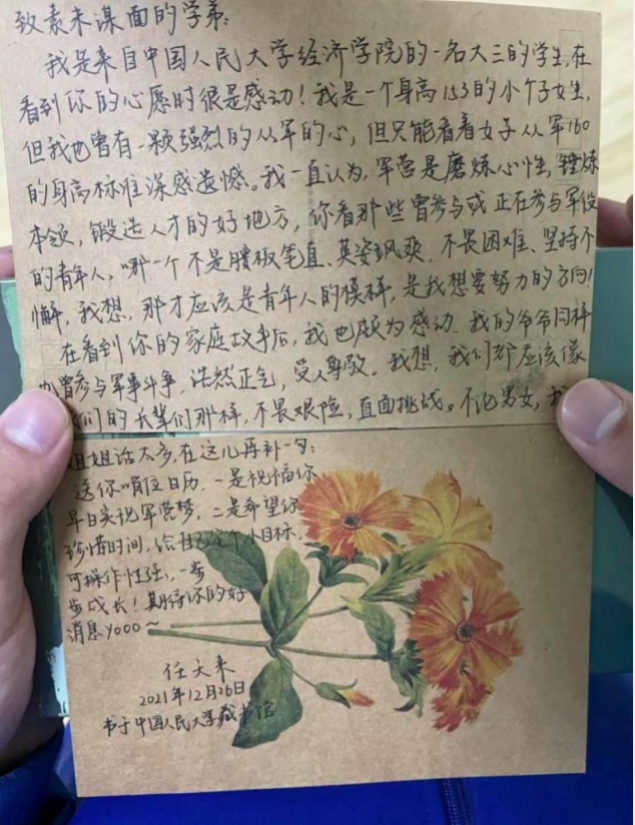 致素未谋面的学弟:
我是来自中国人民大学经济学院的一名大三的学生,在
看到你的心愿时很是感动!我是一个身高153的小个子女生,
但我也曾有一颗强烈的从军的心,但只能看着女子从军160
的身高标准深感遗憾。我一直认为,军营是磨炼心性,锤炼
本领,锻造人才的好地方,你看那些曾参与或正在参与军役
的青年人,哪一个不是腰板笔直、英姿飒爽、不畏困难、坚持不
懈,我想,那才应该是青年人的模样,是我想要努力的方向!
在看到你的家庭故事后,我也颇为感动.我的爷爷同样
也曾参与军事斗争,浩然正气,受人尊敬。我想,我们都应该像
我们的长辈们那样,不畏艰险,直面挑战。不论男女,我
姐姐话太多,在这儿再补一句:
送你哨位日历,一是祝福你
早日实现军营梦,二是希望你
珍惜时间,给自己定个小目标,
可操作性强,一步
步成长!期待你的好
消息yooo~
任天来
2021年12月26日
书于中国人民大学藏书馆